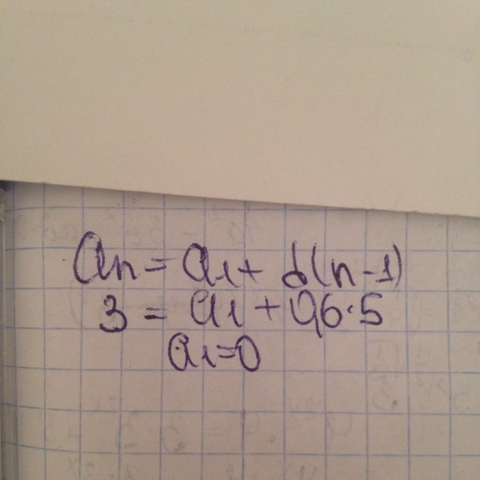 an = a1 + d(n-1)
3 = a1 + 0,6·5
a1=0